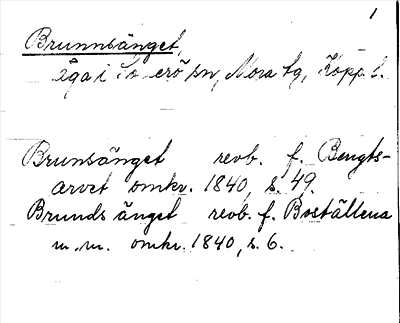 1
Brunnsänget,
äga i To erö sn, Nora tg, Kopp. l.
Brunsänget revb. f. Bengts-
arvet omkr. 1840, s. 49.
Brunds änget revb. f. Boställena
m. m. omkr. 1840, s. 6.